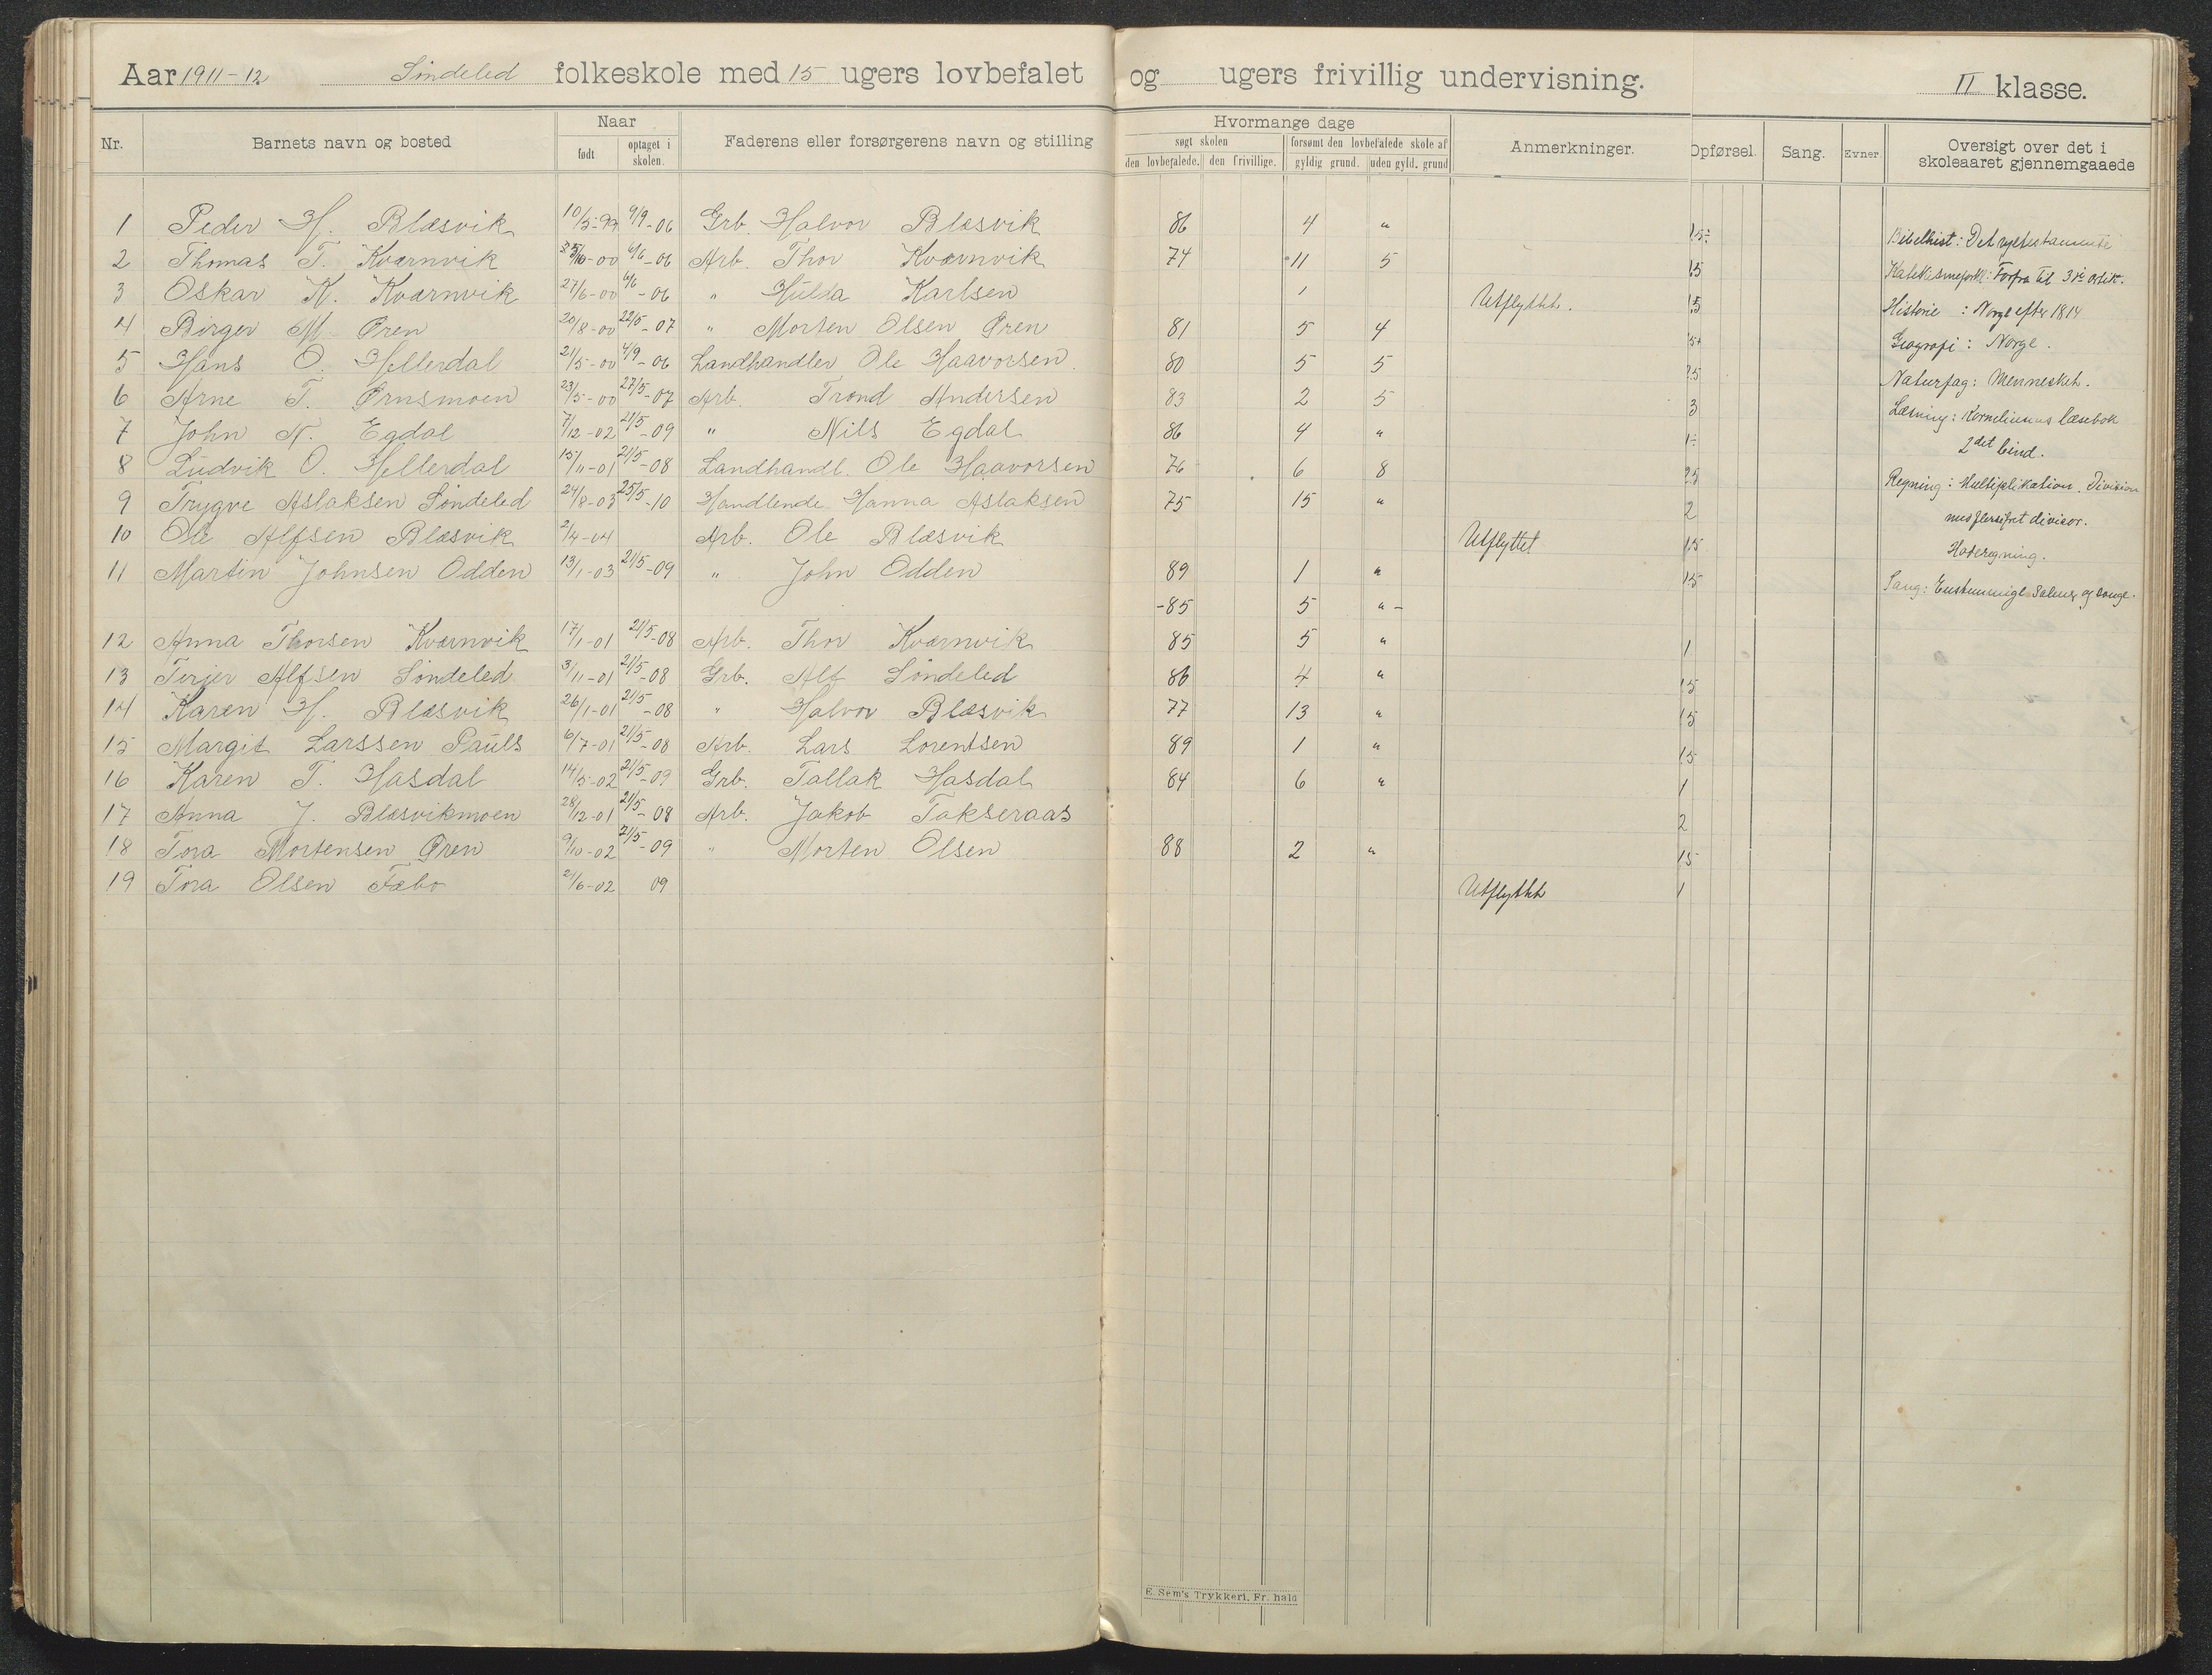 Aar 1911-12 Søndeled folkeskole med 15 ugers lovbefalet og ugers frivillig undervisning. II klasse.
Nr. Barnets navn og bosted Naar født optaget i skolen. Faderens eller forsørgerens navn og stilling Hvormange dage søgt skolen den lovbefalede. den frivillige. forsømt den lovbefalede skole af gyldig grund. uden gyld. grund Anmerkninger. Opførsel. Sang. Evner. Oversigt over det i skoleaaret gjennemgaaede
1 Peder H. Blæsvik 10/5-99 4/9-06 Grb. Halvor Blæsvik 86 4 "
2 Thomas T. Kværnvik -00 6/6-06 Arb. Thor Kværnvik 74 11 5 15
3 Oskar K. Kværnvik 27/6-00 6/6-06 " Hulda Karlsen 1 Utflyttet.
4 Birger M. Øren 20/8-00 22/5-07 " Morten Olsen Øren 81 5 4
5 Hans O. Hellerdal 21/5-00 4/9-06 Landhandler Ole Haavorsen 80 5 5
6 Arne T. Ørnsmoen 23/5-00 27/5-07 Arb. Trond Andersen 83 2 5 3
7 John N. Egdal 7/12-02 21/5-09 " Nils Egdal 86 4 "
8 Ludvik O. Hellerdal 15/11-01 21/5-08 Landhandl. Ole Haavorsen 76 6 8
9 Trygve Aslaksen Søndeled 24/8-03 25/5-10 Handlende Hanna Aslaksen 75 15 " 2
10 Ole Alfsen Blæsvik 2/4-04 Arb. Ole Blæsvik Utflyttet 15
11 Martin Johnsen Odden 13/1-03 21/5-09 " John Odden 89 1 " 15
-85 5 " -
12 Anna Thorsen Kværnvik 17/1-01 21/5-08 Arb. Thor Kværnvik 85 5 " 1
13 Terjer Alfsen Søndeled 3/11-01 21/5-08 Grb. Alf Søndeled 86 4 " 15
14 Karen H. Blæsvik 26/1-01 21/5-08 " Halvor Blæsvik 77 13 " 15
15 Margit Larssen Pauls 6/7-01 21/5-08 Arb. Lars Lorentsen 89 1 " 15
16 Karen T. Hasdal 14/5-02 21/5-09 Grb. Tallak Hasdal 84 6 " 1
17 Anna J. Blæsvikmoen 28/12-01 21/5-08 Arb. Jakob Takseraas 2
18 Tora Mortensen Øren 9/10-02 21/5-09 " Morten Olsen 88 2 " 15
19 Tora Olsen Fæbo 2/6-02 09 Utflyttet 1
Bibelhist: Det nye testamente
Katekismeforkl: Forfra til 3die artik.
Historie : Norge efter 1814
Geografi : Norge.
Naturfag: Mennesket.
Læsning: læsebok
2det bind.
Regning: Multiplikation. Division
med flersifret divisor.
Hoderegning.
Sang: Enstemmige salmer og sange.
E. Sem's Trykkeri, Fr. hald